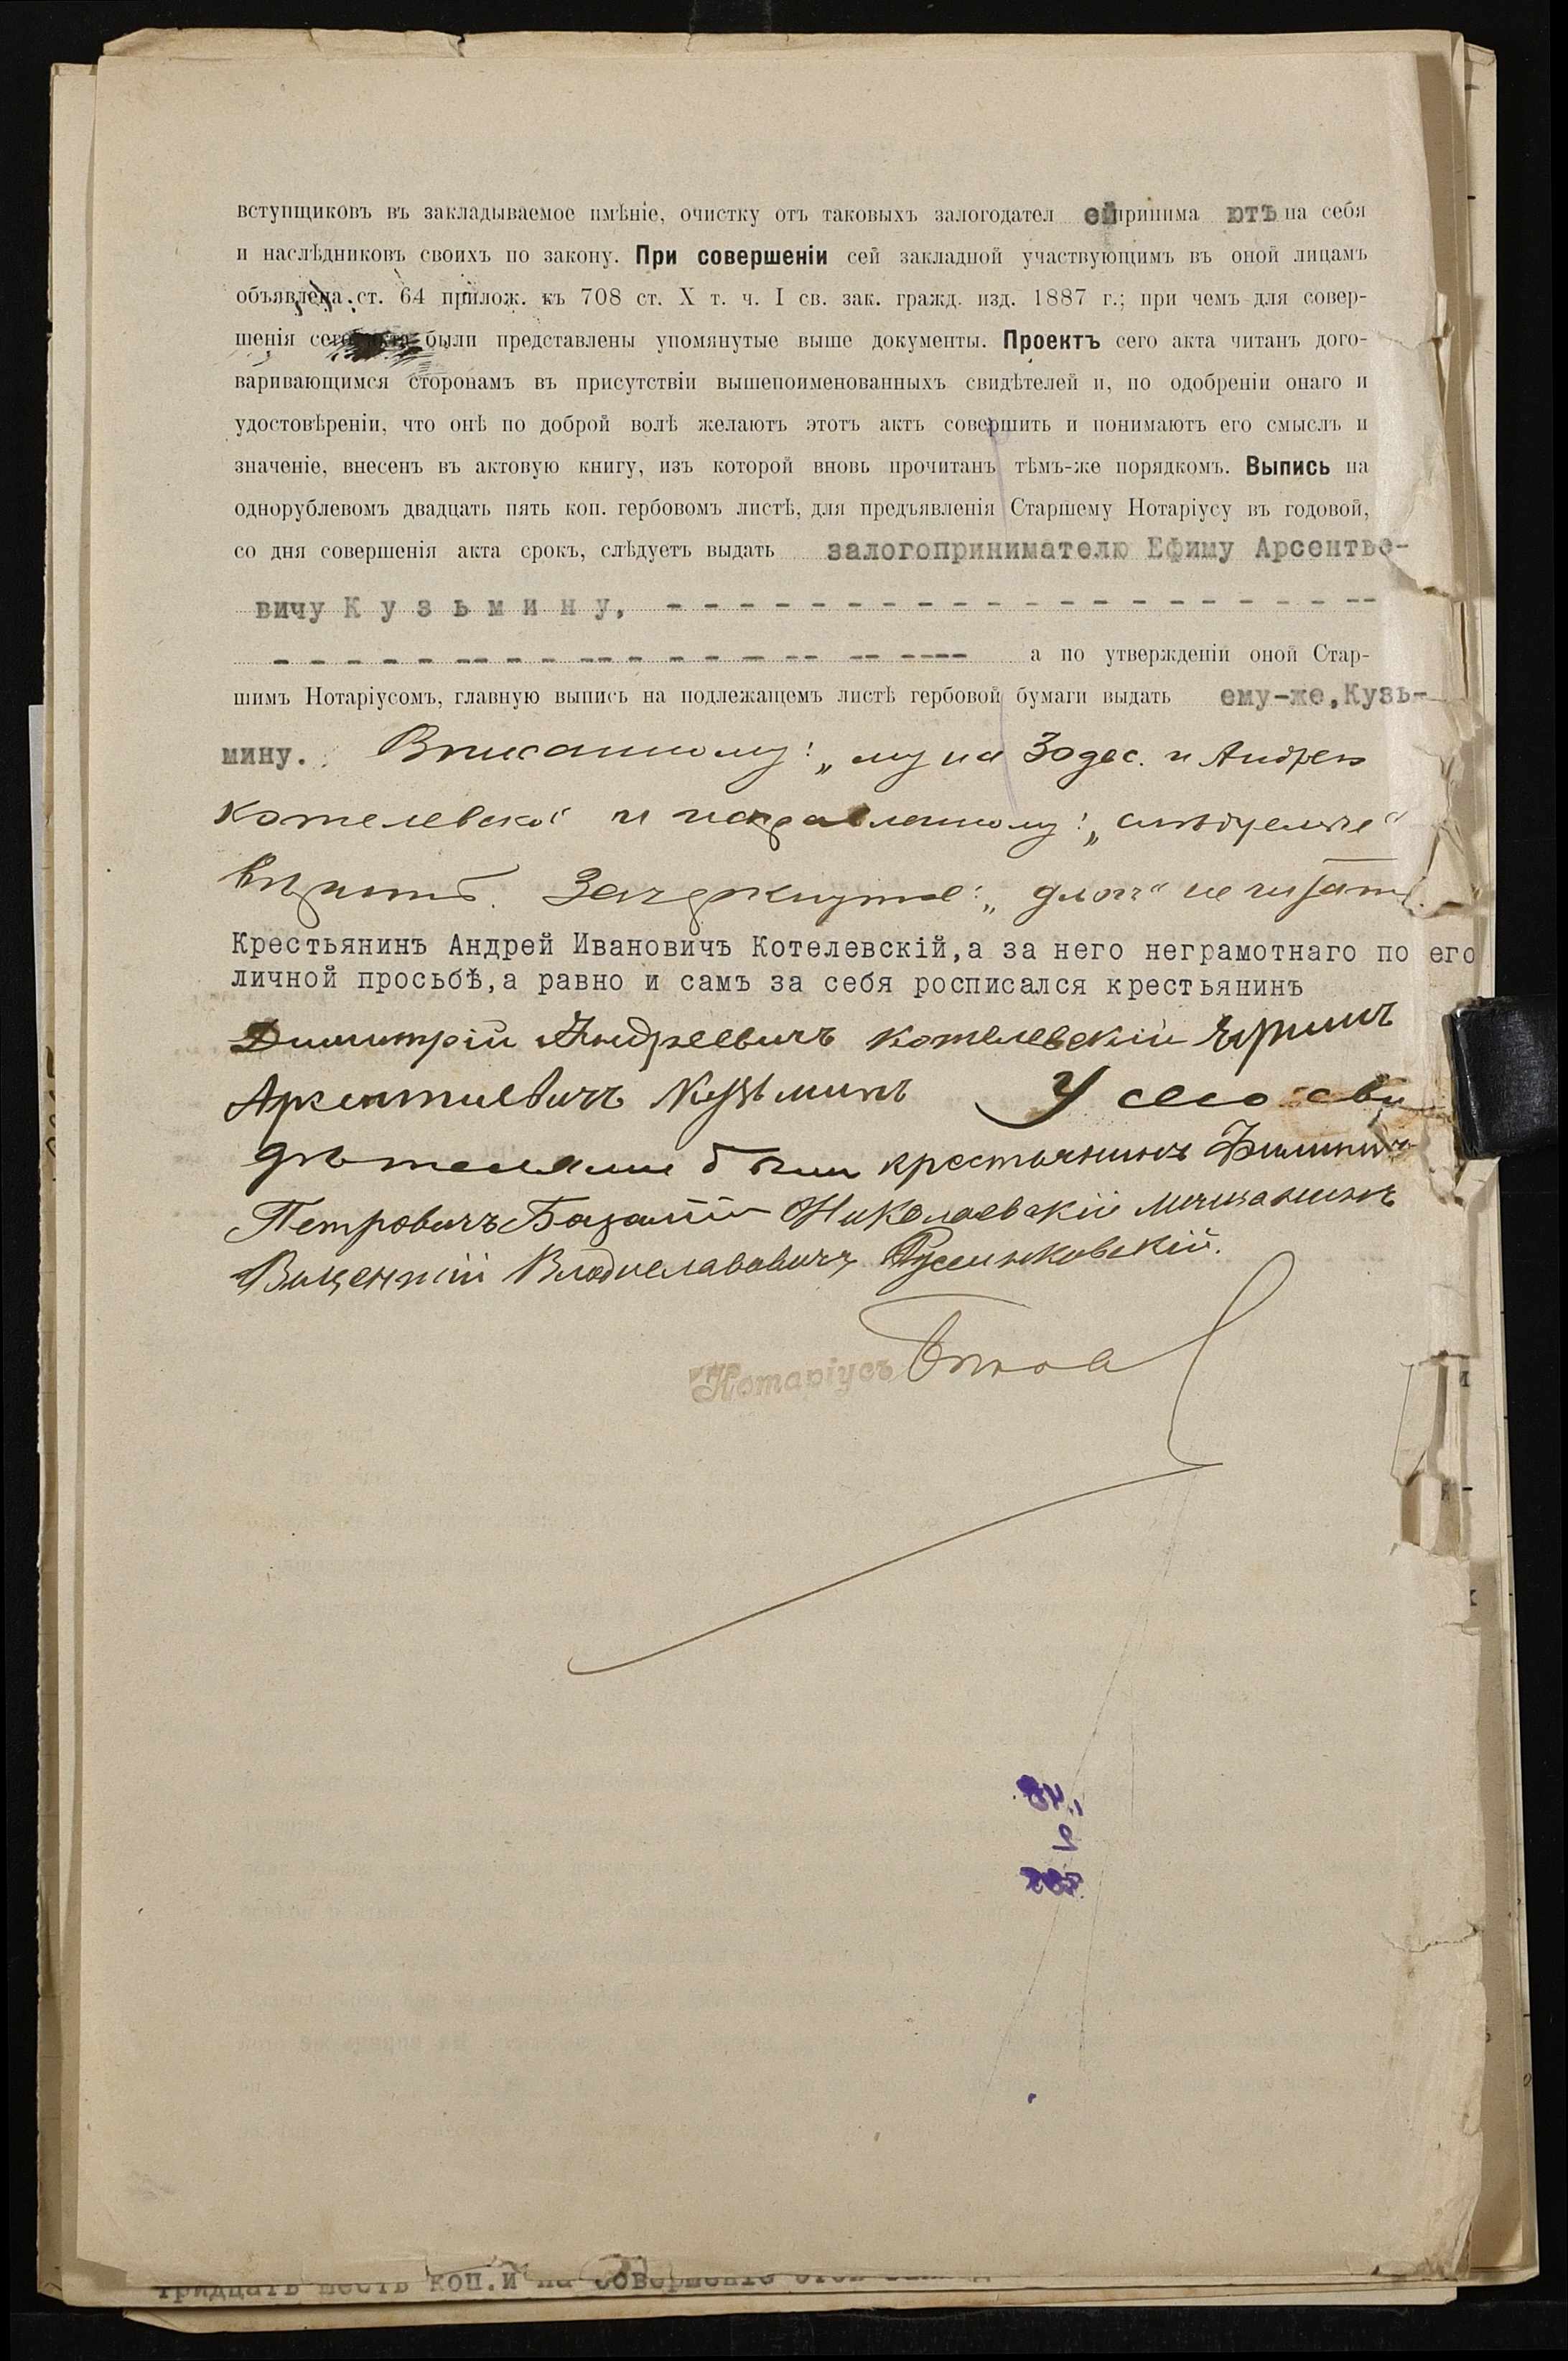 вступщиковъ въ закладываемое имѣніе, очистку отъ таковыхъ залогодател ей принима ютъ на себя
и наслѣдниковъ своихъ по закону. При совершеніи сей закладной участвующимъ въ оной лицамъ
объявлена ст. 64 прилож. къ 708 ст. X т. ч. I св. зак. гражд. изд. 1887 г.; при чемъ для совер-
шенія сего акта были представлены упомянутые выше документы. Проектъ сего акта читанъ дого-
варивающимся сторонамъ въ присутствіи вышепоименованныхъ свидѣтелей и, по одобреніи онаго и
удостовѣреніи, что онѣ по доброй волѣ желаютъ этотъ актъ совершить и понимаютъ его смыслъ и
значеніе, внесенъ въ актовую книгу, изъ которой вновь прочитанъ тѣмъ-же порядкомъ. Выпись на
однорублевомъ двадцать пять коп. гербовомъ листѣ, для предъявленія Старшему Нотаріусу въ годовой,
со дня совершенія акта срокъ, слѣдуетъ выдать залогопринимателю Ефиму Арсентье-
вичу К у з ь м и н у, - - - - - - - - - - - - - - - - - - - - --
- - - - - -- - - -- - - - - -- -- ---- а по утвержденіи оной Стар-
шимъ Нотаріусомъ, главную выпись на подлежащемъ листѣ гербовой бумаги выдать ему-же, Кузь-
мину. Вписанному: „му на 30 дес. и Андрея
Котелевско“ и исправленному:
вѣрить. Зачеркнутое: не читать.
Крестьянинъ Андрей Ивановичъ Котелевскій, а за него неграмотнаго по его
личной просьбѣ, а равно и самъ за себя росписался крестьянинъ
Димитрій Андреевичъ Котелевскій Ефимъ
Арсентиевичъ Кузьминъ У сего сви
дѣтелями были крестьянинъ Филиппъ
Петровичъ Базалій Николаевскій мѣщанинъ
Викентій Владиславовичъ
Нотаріусъ
тридцать шесть коп. и на совершеніе этой